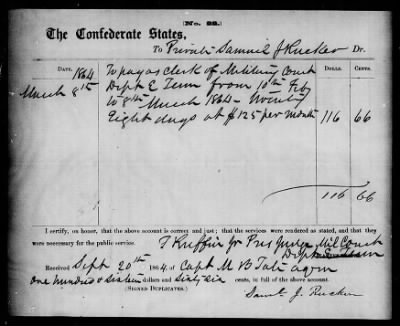 [No. 22.]
The Confederate States,
To Private Samuel J Rucker Dr.
DATE. 1864 DOLLS. CENTS.
To pay as clerk of Military Court
March 8th Dept E Tenn from 10th Feb
to 8th March 1864 - Twenty
Eight days at $125 per month 116 66
116 66
I certify, on honor, that the above account is correct and just; that the services were rendered as stated, and that they
were necessary for the public service. T Ruffin Jr Pres Judge Mil Court
Dept E
Received Sept 20th 1864, of Capt M B Tate
One hundred & sixteen dollars and sixty six cents, in full of the above account.
(SIGNED DUPLICATES.) Saml J. Rucker